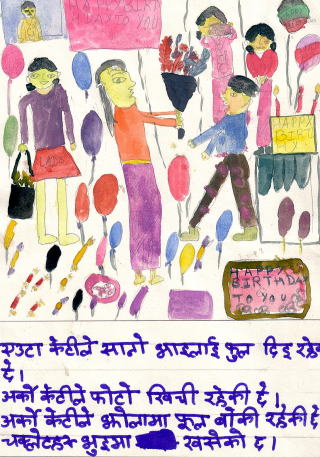 HAPPY BIRTH
DAY TO YOU
HAPPY
HAPPY
BIRTHDA
TO YOU
एउटा केटीले सानो भाइलाई फुल दिइ रहेक
दे।
अर्को केटीले फोटो खिची रहेकी दे।,
अर्को केटीले झोलामा फूल बोकी रहेकी दे
चकलेटहरु भुइमा खसेको द।